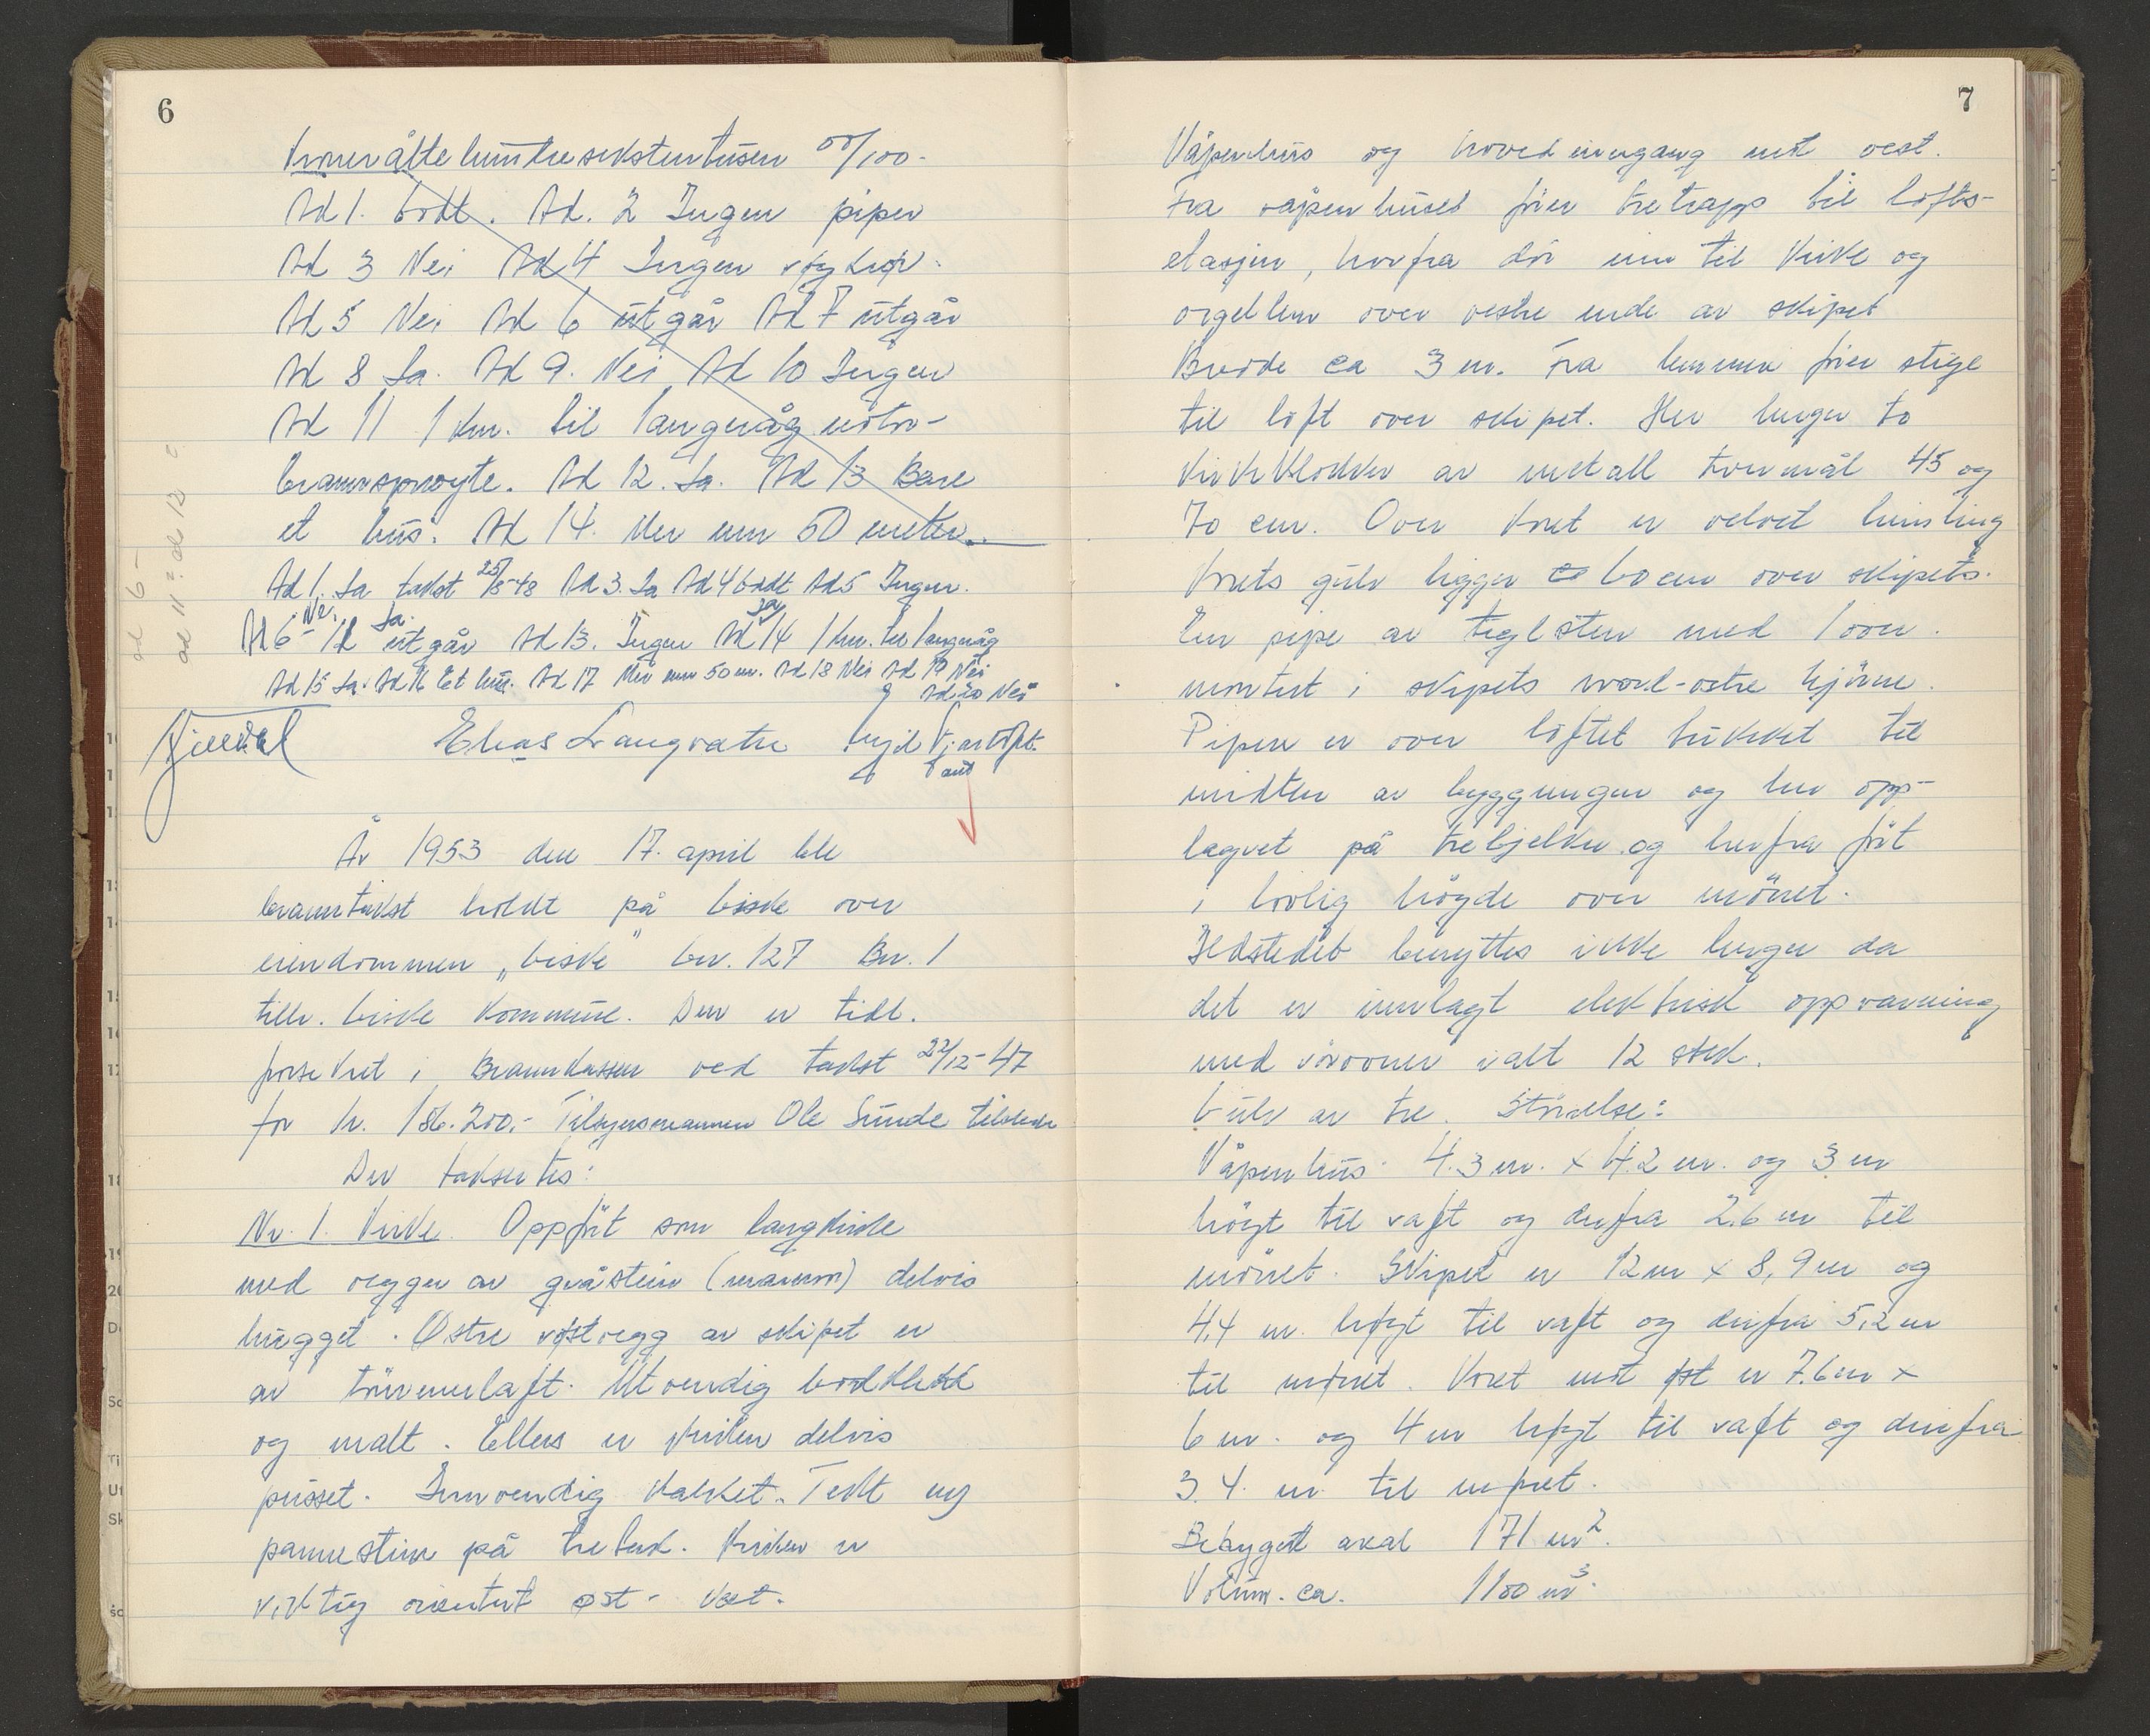 6
Kroner åtte hundre seksten tusen 00/100.
Ad 1. Godt. Ad. 2 Ingen piper
Ad 3 Nei Ad 4 Ingen røykrør.
Ad 5 Nei Ad 6 utgår Ad 7 utgår
Ad 8 Ja. Ad 9. Nei Ad 10 Ingen
Ad 11 1 km. til Langevåg motor-
brannsprøyte. Ad 12. Ja. Ad 13 Bare
et hus. Ad 14. Mer enn 50 meter.
Ad 1. Ja takst 25/8-48 Ad 3. Ja Ad 4 Godt Ad 5 Ingen.
Nei Ja. Ja
Ad 6 - 12 utgår Ad 13. Ingen Ad 14 1 km. til Langevåg
Ad 15 Ja. Ad 16 Et hus. Ad 17 Mer enn 50 m. Ad 18 Nei Ad 19 Nei
Ad 20 Nei
Elias Langvatn
ad 6 -
ad 11 ad 12
År 1953 den 17. april ble
branntakst holdt på Giske over
eiendommen „Giske" Gnr. 127 Bnr. 1
tilh. Giske kommune. Den er tidl.
forsikret i Brannkassen ved takst 22/12-47
for kr. 186.200.- Tilsynsmannen Ole Sunde tilstede
Der taksertes:
Nr. 1. Kirke. Oppført som langkirke
med vegger av gråstein (marmor) delvis
hugget. Østre røstvegg av skipet er
av tømmerlaft. Utvendig bordkledd
og malt. Ellers er kirken delvis
pusset. Innvendig kalket. Tekt m/
pannestein på tretak. Kirken er
riktig orientert øst - vest.
7
Våpenhus og hovedinngang mot vest.
Fra våpenhuset fører tretrapp til lofts-
etasjen, hvorfra dør inn til kirke og
orgellem over vestre ende av skipet
Bredde ca 3 m. Fra lemmen fører stige
til loft over skipet. Her henger to
kirkeklokker av metall tverrmål 45 og
70 cm. Over koret er velvet himling
Korets gulv ligger ca 60 cm over skipets.
En pipe av teglsten med 1 ovn.
montert i skipets nord-østre hjørne.
Pipen er over loftet trukket til
midten av bygningen og her opp-
lagret på trebjelker og herfra ført
i lovlig høgde over mønet.
Ildstedet benyttes ikke lenger da
det er innlagt elektrisk oppvarming
med rørovner i alt 12 stek.
Gulv av tre. Størrelse:
Våpenhus. 4.3 m. x 4.2 m. og 3 m
høgt til raft og derfra 2.6 m til
mønet. Skipet er 12 m x 8,9 m og
4,4 m. høgt til raft og derfra 5,2 m
til mønet. Koret mot øst er 7.6 m x
6 m. og 4 m høgt til raft og derfra
3.4. m til mønet.
Bebygget areal 171 m².
Volum. ca. 1100 m³.